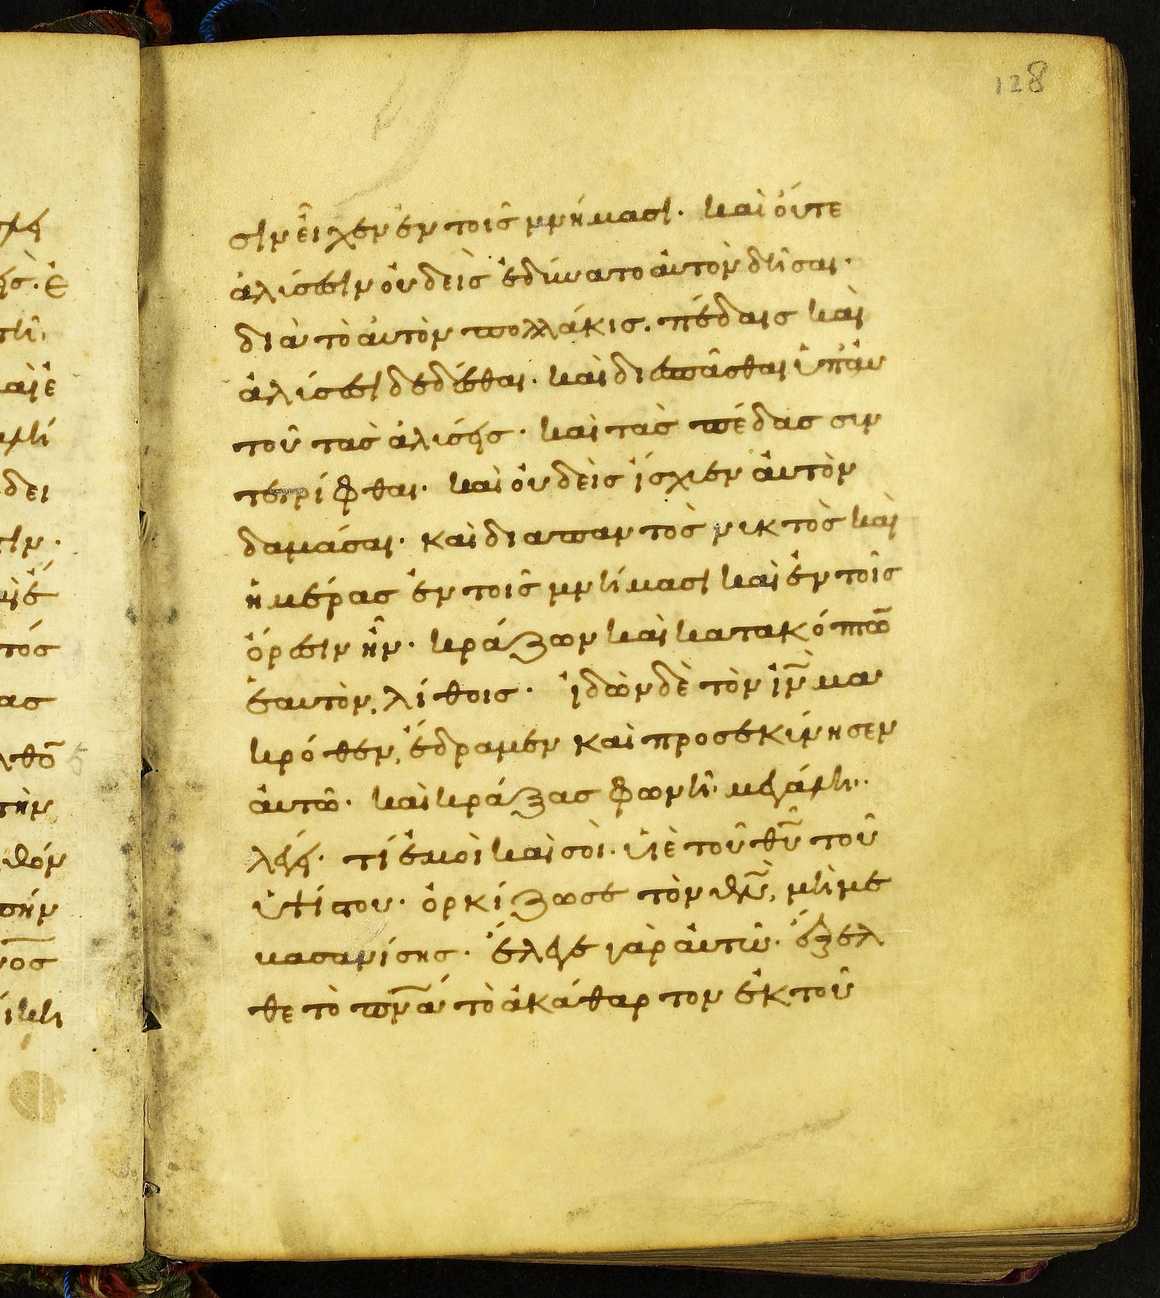 σιν εἶχεν ἐν τοῖς μνήμασι· καὶ οὔτε
ἁλύσεσιν οὐδεὶς ἐδύνατο αὐτὸν δῆσαι·
διὰ τὸ αὐτὸν πολλάκις. πέδαις καὶ
ἁλύσεσι δεδέσθαι· καὶ διεσπᾶσθαι ὑπ' αὐ
τοῦ τὰς ἁλύσεις· καὶ τὰς πέδας συν
τετρίφθαι· καὶ οὐδεὶς ἴσχυεν αὐτὸν
δαμάσαι· καὶ διαπαντὸς νυκτὸς καὶ
ἡμέρας ἐν τοῖς μνήμασι καὶ ἐν τοῖς
ὄρεσιν ἦν· κράζων καὶ κατακόπτω̅
ἑαυτὸν, λίθοις· ἰδὼν δὲ τὸν ἰ̅ν̅ μα
κρόθεν, ἔδραμεν καὶ προσεκύνησεν
αὐτῶ· καὶ κράξας φωνῆ· μεγάλη·
λέγει· τί ἐμοὶ καὶ σοὶ· υἱὲ τοῦ θ̅υ̅ τοῦ
ὑψίστου· ὁρκίζω σε τὸν θ̅ν̅, μή με
βασανίσης· ἔλεγε γὰρ αὐτῶ· ἔξελ
θε τὸ π̅ν̅α̅ τὸ ἀκάθαρτον ἐκ τοῦ
128